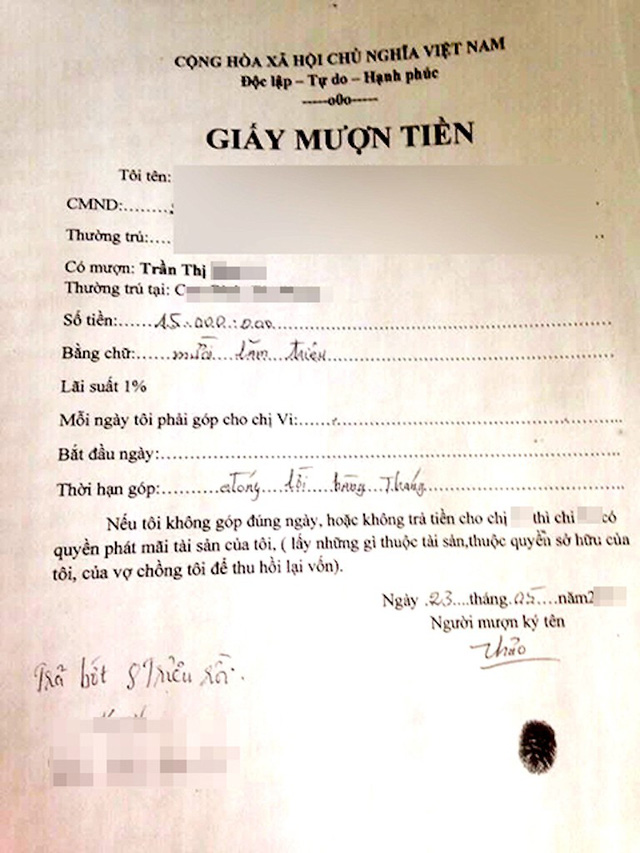 CỘNG HÒA XÃ HỘI CHỦ NGHĨA VIỆT NAM
Độc lập – Tự do – Hạnh phúc
-----o0o-----
GIẤY MƯỢN TIỀN
Tôi tên:
CMND:........
Thường trú:....
Có mượn: Trần Thị
Thường trú tại: C
Số tiền:......15.000.000
Bằng chữ:......mười lăm triệu
Lãi suất 1%
Mỗi ngày tôi phải góp cho chị Vi:
Bắt đầu ngày:
Thời hạn góp:.........đóng lời hàng tháng
Nếu tôi không góp đúng ngày, hoặc không trả tiền cho chị thì chi có
quyền phát mãi tài sản của tôi, ( lấy những gì thuộc tài sản,thuộc quyền sở hữu của
tôi, của vợ chồng tôi để thu hồi lại vốn).
Ngày .23....tháng.05....năm2
Người mượn ký tên
Thảo
Trả bớt 8 Triệu rồi.